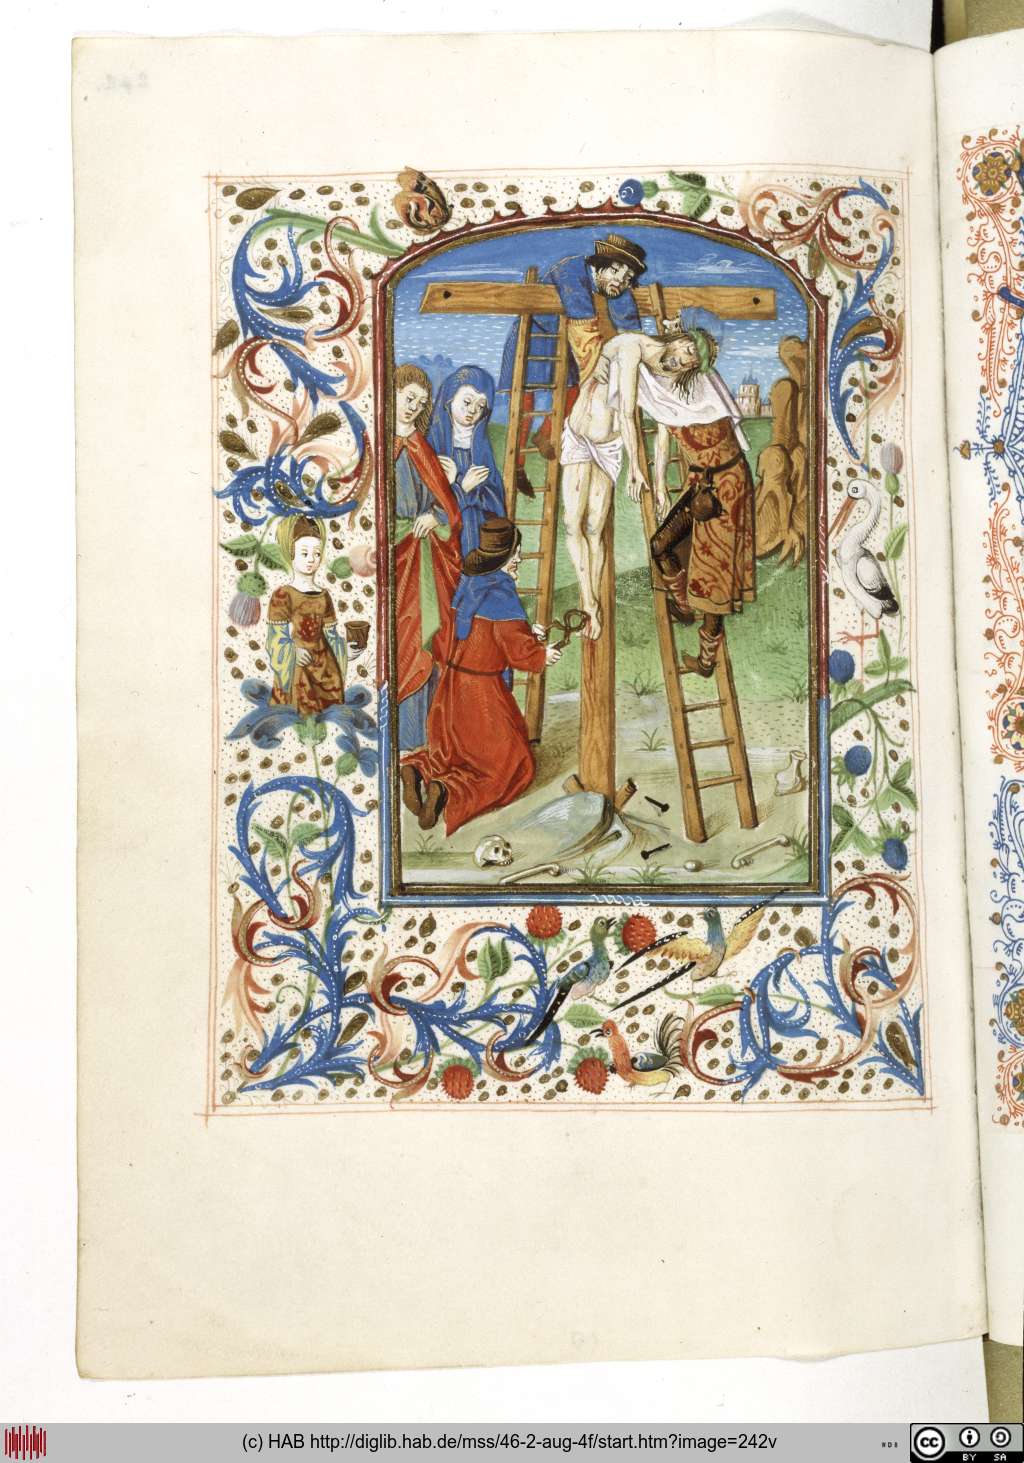 (c) HAB http://diglib.hab.de/mss/46-2-aug-4f/start.htm?image=242v
cc BY SA